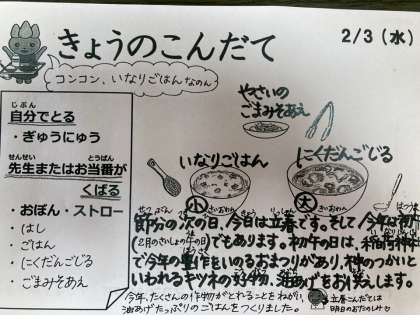 きょうのこんだて
2/3 (水)
コンコン、いなりごはんなのん♪
じぶん
自分でとる
・ぎゅうにゅう
せんせい とうばん
先生またはお当番が
くばる
・おぼん・ストロー
・はし
・ごはん
・にくだんごじる
・ごまみそあえ
やさいの
ごまみそあえ
いなりごはん
にくだんごじる
小 さいおわん
大 さいおわん
節分の次の日、今日は立春です。そして今年は初午
(2月のさいしょの午の日)でもあります。初午の日は、稲荷神社
で今年の豊作をいのるおまつりがあり、神のつかいと
いわれるキツネの好物、油あげをお供えします。
今年、たくさんの作物がとれることをねがい、
油あげたっぷりのごはんをつくりました。
立春こんだては
明日のおたのしみ